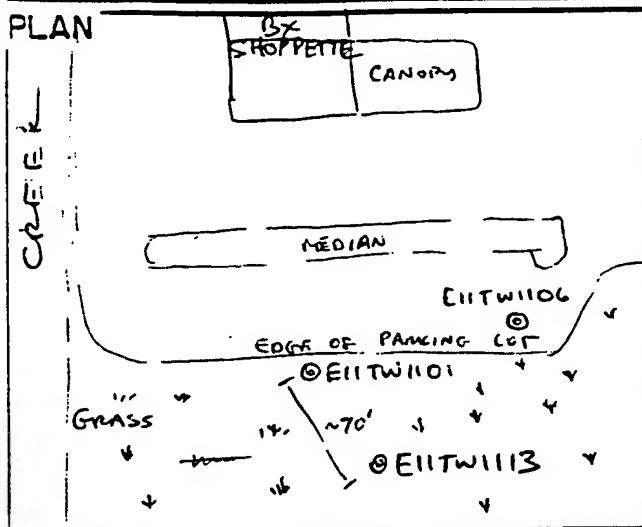 PLAN
BX
SHOPPETTE
CANOPY
CREEK
MEDIAN
E11TW1106
EDGE OF PARKING LOT
E11TW1101
GRASS
~70'
E11TW1113